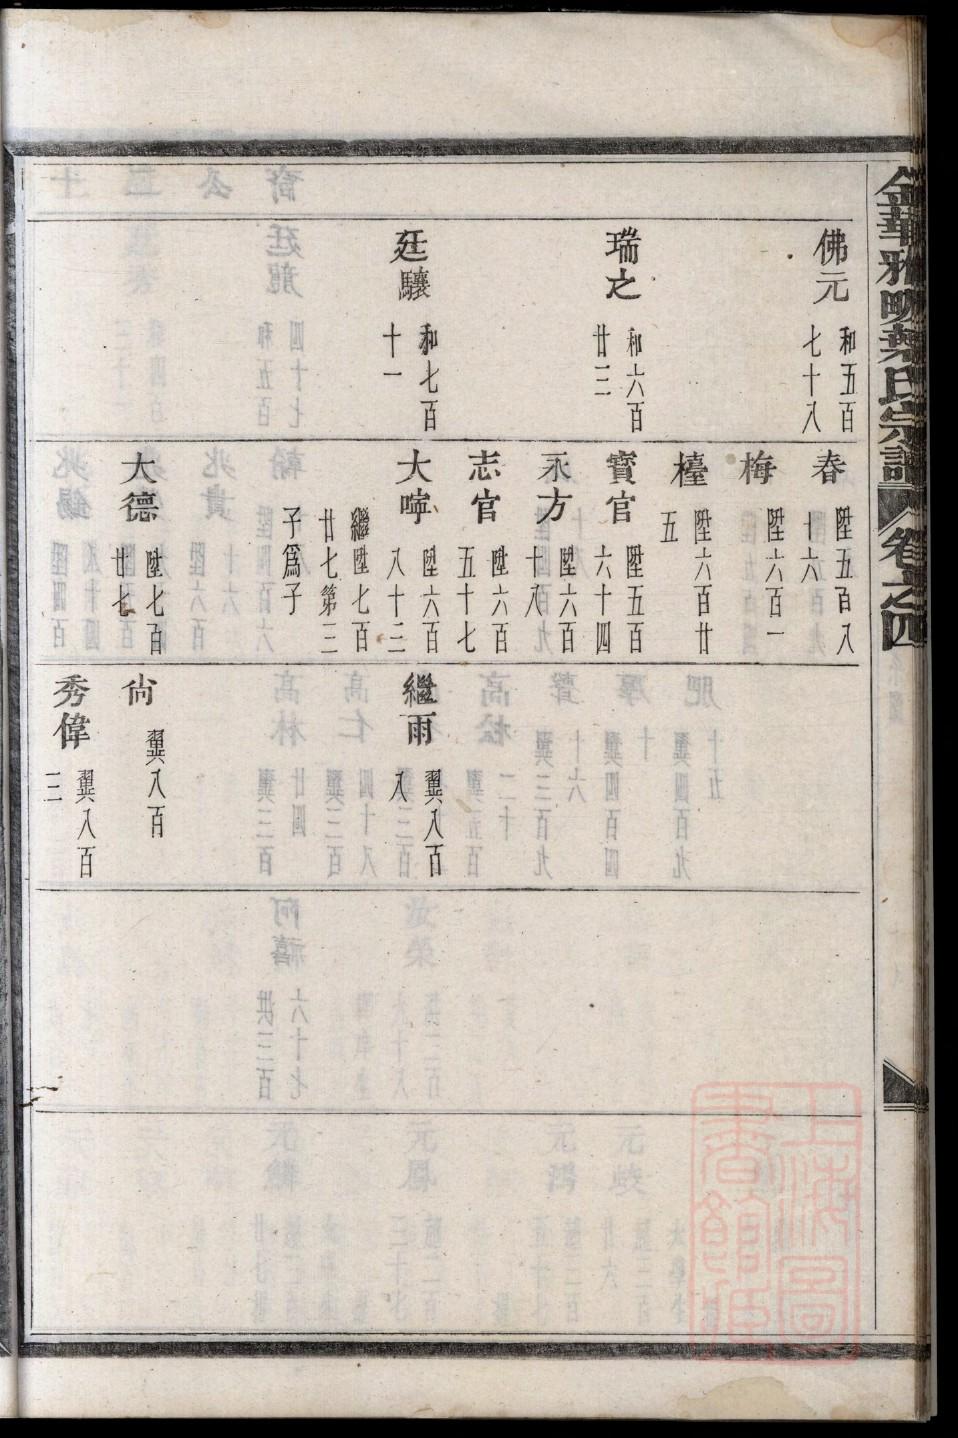 金華雅畈葉氏宗譜 卷之四
佛元 和五百七十八
瑞之 和六百廿三
廷驤 和七百十一
春 陞五百八十六
梅 陞六百一
檯 陞六百廿五
寳官 陞五百六十四
永方 陞六百十八
志官 陞六百五十七
大嚀 陞六百八十三
繼陞七百廿七第三子爲子
大德 陞七百廿七
繼雨 翼八百八
尙 翼八百
秀偉 翼八百三
上海圖書館藏